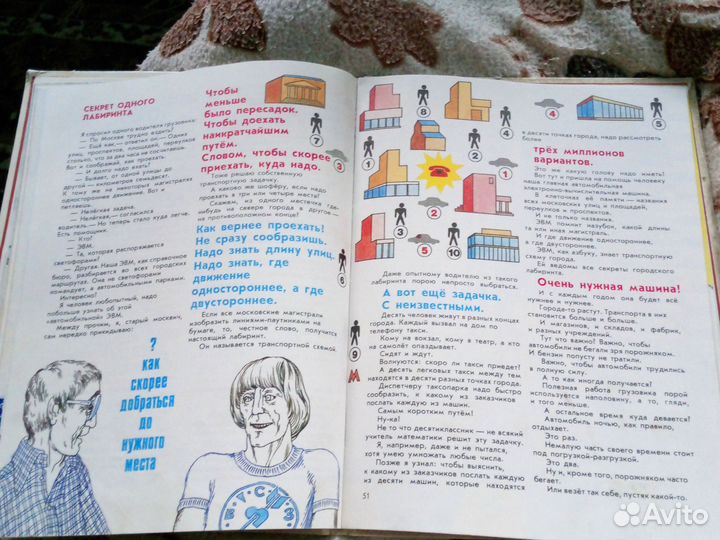 СЕКРЕТ ОДНОГО
ЛАБИРИНТА
Я спросил одного водителя грузовика:
— По Москве трудно ездить?
— Ещё как,— ответил он.— Одних
улиц, проспектов, площадей, переулков
столько, что за два часа не сосчитаешь.
Вот и соображай, как проехать.
— И долго надо ехать?
— Бывает, от одной улицы до
другой — километров семьдесят.
К тому же на некоторых магистралях
одностороннее движение. Вот и
петляешь.
— Нелёгкая задача.
— Нелёгкая,— согласился
водитель.— Но теперь стало куда легче.
Есть помощник.
— Кто?
— ЭВМ.
— Та, которая распоряжается
светофорами!
— Другая. Наша ЭВМ, как справочное
бюро, разбирается во всех городских
маршрутах. Она не светофорами
командует, а автомобильными парками.
Интересно!
Я человек любопытный, надо
побольше узнать об этой
«автомобильной» ЭВМ.
Между прочим, я, старый москвич,
сам нередко прикидываю:
?
как
скорее
добраться
до
нужного
места
Чтобы
меньше
было пересадок.
Чтобы доехать
наикратчайшим
путём.
Словом, чтобы скорее
приехать, куда надо.
Тоже решаю собственную
транспортную задачку.
А каково же шофёру, если надо
проехать в три или четыре места!
Скажем, из одного местечка где-
нибудь на севере города в другое —
на противоположном конце!
Как вернее проехать!
Не сразу сообразишь.
Надо знать длину улиц.
Надо знать, где
движение
одностороннее, а где
двустороннее.
Если все московские магистрали
изобразить линиями-паутинками на
бумаге, то, честное слово, получится
настоящий лабиринт.
Он называется транспортной схемой.
БЧС
З
7
3
6
9
М
1
8
4
5
2
1
2
3
5
10
Даже опытному водителю из такого
лабиринта порой непросто выбраться.
А вот ещё задачка.
С неизвестными.
Десять человек живут в разных концах
города. Каждый вызвал на дом по
телефону такси.
Кому на вокзал, кому в театр, а кто
на самолёт опаздывает.
Сидят и ждут.
Волнуются: скоро ли такси приедет?
А десять легковых такси между тем
находятся в десяти разных точках города.
Диспетчеру таксопарка надо быстро
сообразить, к какому из заказчиков
послать каждую из машин.
Самым коротким путём!
Ну-ка!
Не то что десятиклассник — не всякий
учитель математики решит эту задачку.
Я, например, даже и не пытался,
хотя умею умножать любые числа.
Позже я узнал: чтобы выяснить,
к какому из заказчиков послать каждую
из десяти машин, которые находятся
51
в десяти точках города, надо рассмотреть
более
трёх миллионов
вариантов.
Это же какую голову надо иметь!
Вот тут и пришла на помощь человеку
наша главная автомобильная
электронно-вычислительная машина.
В клеточках её памяти — названия
всех московских улиц и площадей,
переулков и проспектов.
И не только названия.
ЭВМ помнит назубок, какой длины
та или иная магистраль.
Где движение одностороннее,
а где двустороннее.
ЭВМ, как азбуку, знает транспортную
схему города.
Ей ведомы все секреты городского
лабиринта.
Очень нужная машина!
И с каждым годом она будет всё
нужнее и нужнее.
Города-то растут. Транспорта в них
становится больше и больше.
И магазинов, и складов, и фабрик,
и разных учреждений.
Тут что важно? Важно, чтобы
автомобили не бегали зря порожняком.
И бензин попусту не тратили.
Важно, чтобы автомобили трудились
в полную силу.
А то как иногда получается!
Полезная работа грузовика порой
используется наполовину, а то, гляди,
и того меньше.
А остальное время куда девается!
Автомобиль ночью, как правило,
отдыхает.
Это раз.
Немалую часть своего времени стоит
под погрузкой-разгрузкой.
Это два.
Ну и, кроме того, порожняком часто
бегает.
Или везёт так себе, пустяк какой-то.
Avito